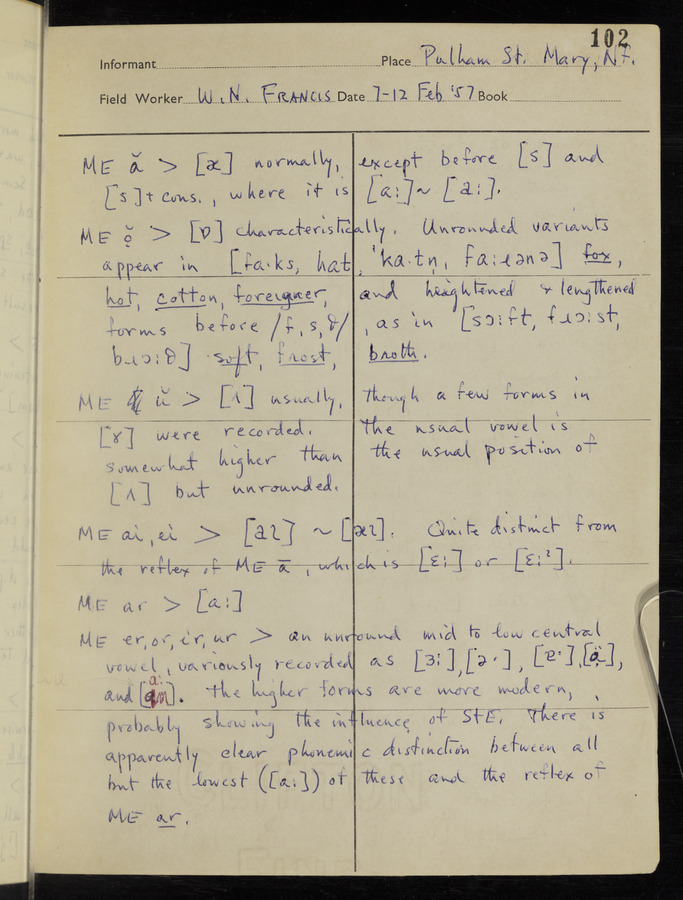 102
Informant Place Pulham St. Mary, Nf.
Field Worker W. N. FRANCIS Date 7-12 Feb '57 Book
ME ă > [æ] normally, except before [s] and
[s] + cons., where it is [a:] ~ [ɑ:].
ME ǫ̆ > [ɒ] characteristically. Unrounded variants
appear in [fɑ·ks, hɑt, 'kɑ·tn̩, fɑ:ɹənə] fox,
hot, cotton, foreigner, and heightened & lengthened
forms before /f, s, θ/, as in [sɔ:ft, fɹɔ:st,
bɹɔ:θ] soft, frost, broth.
ME ŭ > [ʌ] usually, though a few forms in
[ɤ] were recorded. The usual vowel is
somewhat higher than the usual position of
[ʌ] but unrounded.
ME ai, ei > [aɩ] ~ [æɩ]. Quite distinct from
the reflex of ME ā, which is [ɛ:] or [ɛ:ᶦ].
ME ar > [a:]
ME er, or, ir, ur > an unround mid to low central
vowel, variously recorded as [ɜ:], [ə·], [ɐ·], [ä],
and [a:]. The higher forms are more modern,
probably showing the influence of StE. There is
apparently clear phonemic distinction between all
but the lowest ([a:]) of these and the reflex of
ME ar.